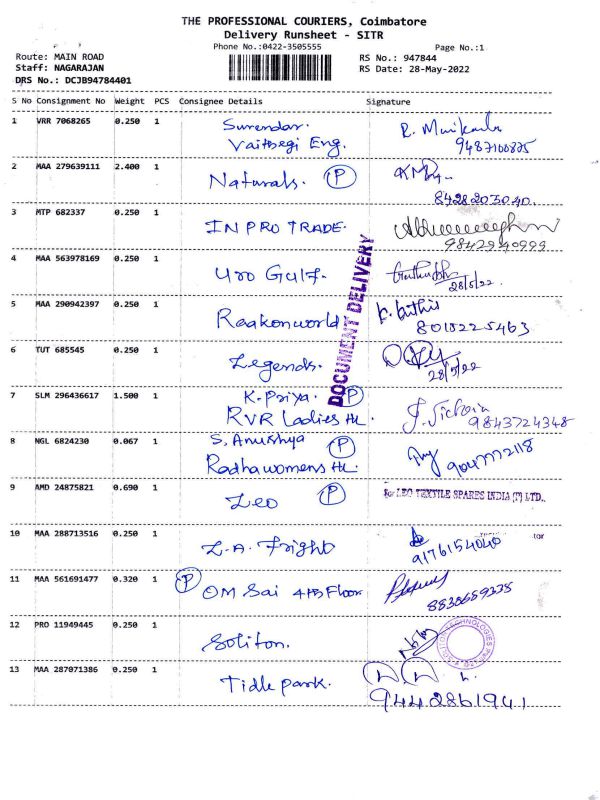 THE PROFESSIONAL COURIERS, Coimbatore
Delivery Runsheet - SITR
Phone No.:0422-3505555
Page No.:1
Route: MAIN ROAD
RS No.: 947844
Staff: NAGARAJAN
RS Date: 28-May-2022
DRS No.: DCJB94784401
S No Consignment No Weight PCS Consignee Details Signature
1 VRR 7068265 0.250 1 Surendar.
Vaithegi Eng.
2 MAA 279639111 2.400 1 Naturals. P
8428203040.
3 MTP 682337 0.250 1 IN PRO TRADE.
9842940999
4 MAA 563978169 0.250 1 Uro Gulf.
28/5/22.
5 MAA 290942397 0.250 1 Raakonworld
8015225463
6 TUT 685545 0.250 1 Legends.
28/5/22
7 SLM 296436617 1.500 1 K. Priya. P
RVR Ladies HL.
9843724348
8 NGL 6824230 0.067 1 S. Anushya P
Radha womens HL.
9047772118
9 AMD 24875821 0.690 1 Leo P for LEO TEXTILE SPARES INDIA (P) LTD.,
10 MAA 288713516 0.250 1 L.A. Fright
9176154040
tor
11 MAA 561691477 0.320 1 P OM Sai 4th Floor
12 PRO 11949445 0.250 1 Soliton.
13 MAA 287071386 0.250 1 Tidle park.
9442861941
DOCUMENT DELIVERY